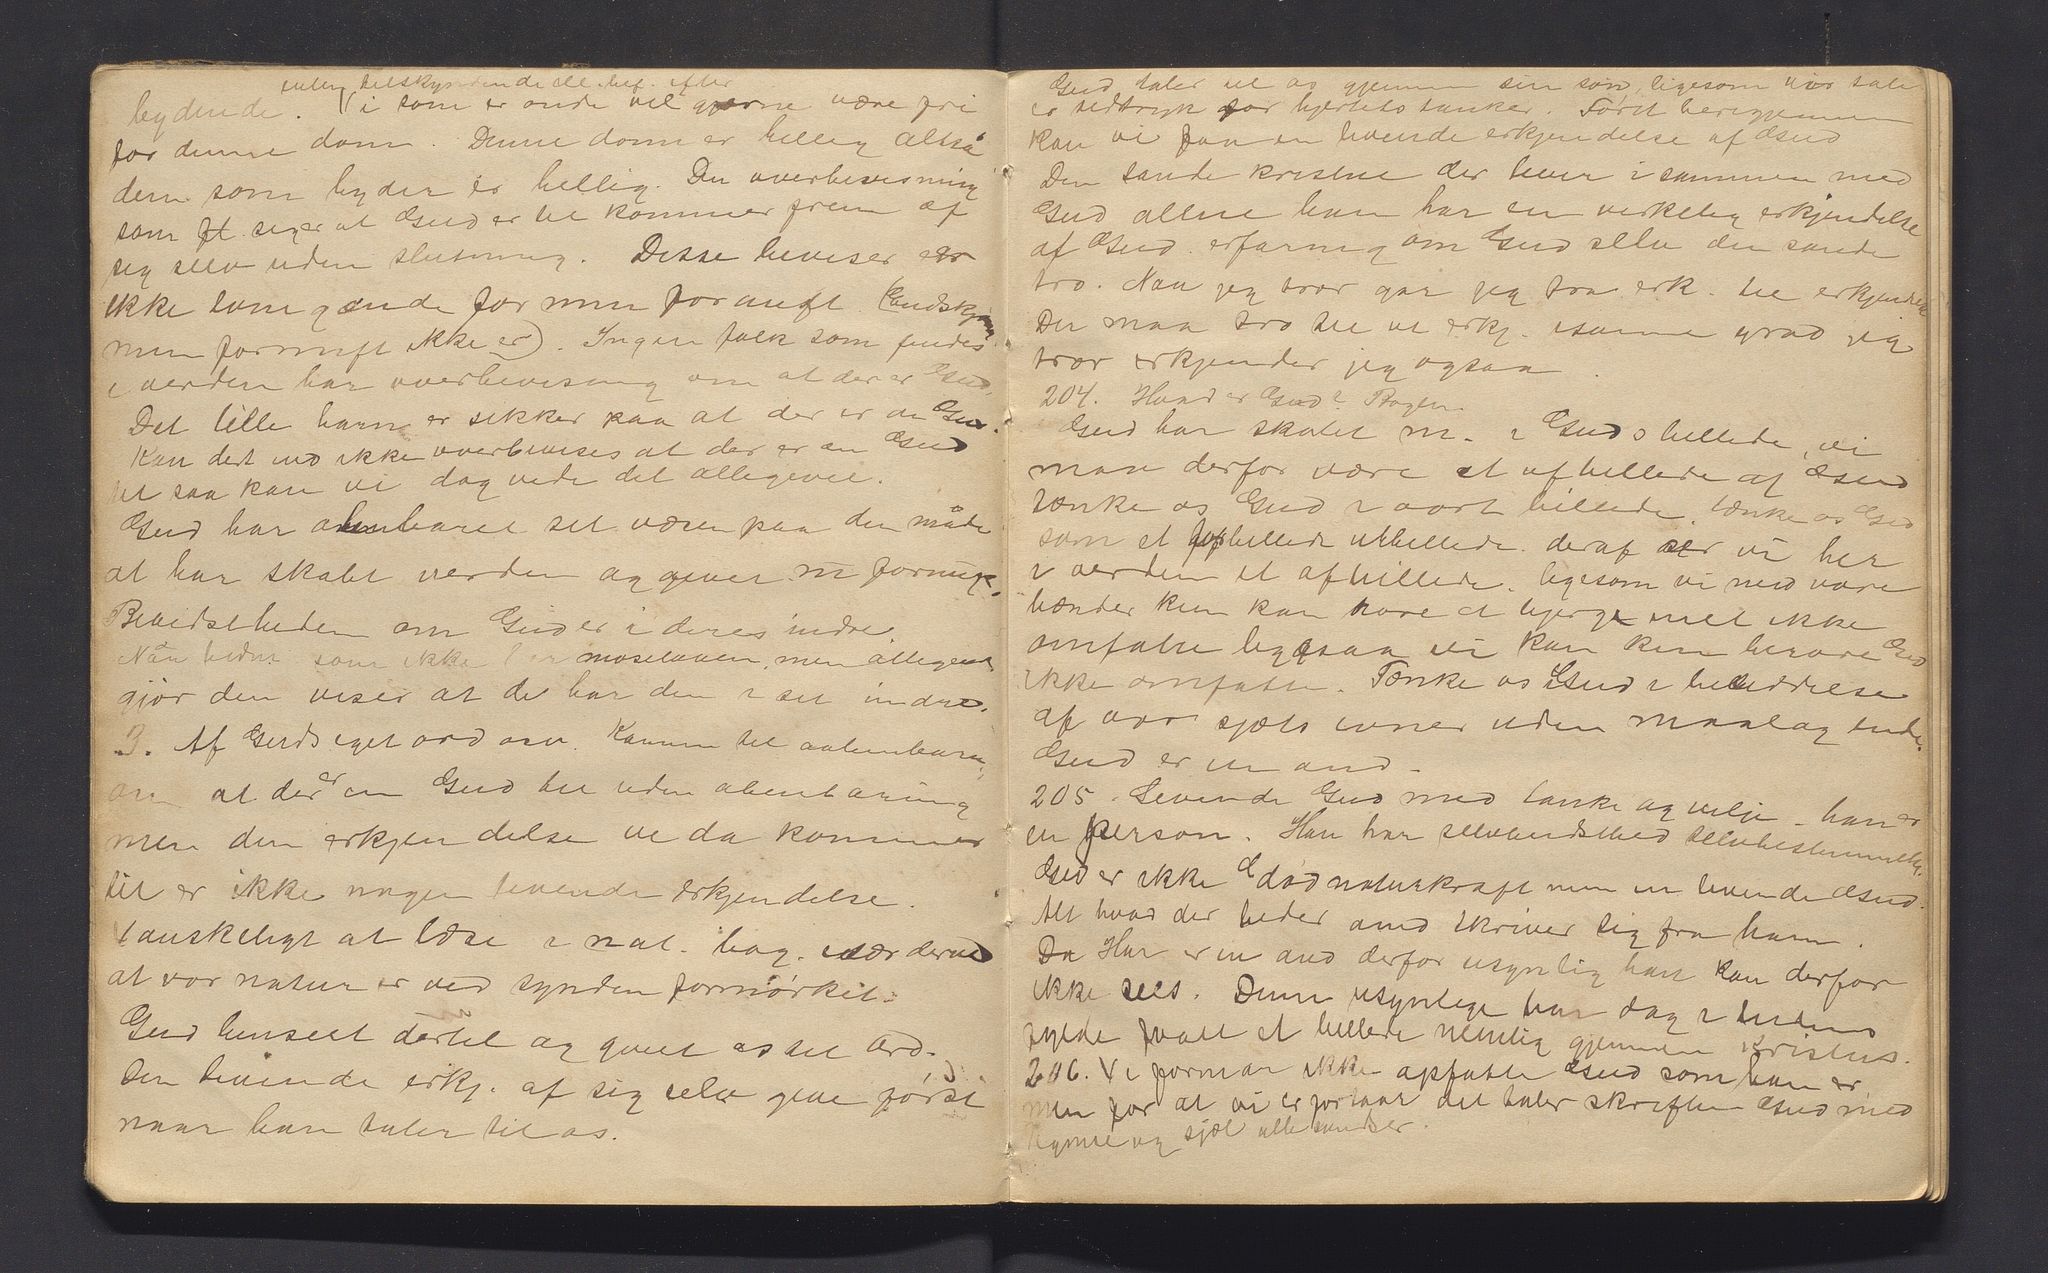 enten tilskyndende ell. bef. efter
bydende. Vi som er onde vil gjerne være fri
for denne dom. Denne dom er hellig altsaa
den som byder er hellig. Den overbevisning
som siger at Gud er til kommer frem af
sig selv uden slutning. Disse beviser er
ikke tvingende for min fornuft (Gudskj
min fornuft ikke er). Ingen folk som findes
i verden har overbevisning om at der er Gud
Det lille barn er sikker paa at der er en Gud.
Kan det end ikke overbevises at der er en Gud
til saa kan vi dog vide det alligevel.
Gud har aabenbaret sit væsen paa den måde
at har skabt verden og givet m fornuft.
Bevidstheden om Gud er i deres indre.
Når hedn. som ikke har moseloven, men alligevel
gjør den viser at de har den i sit indre.
3. Af Guds eget ord osv. Kommen til aabenbaring
om at der er en Gud til uden abenbaring
men den erkjendelse vi da kommer
til er ikke nogen levende erkjendelse.
Vanskeligt at læse i nat. bog. især derved
at vor natur er ved synden formørket.
Gud henseet dertil og givet os sit ord.
Den levende erkj. af sig selv give først
naar han taler til os.
Gud taler til os gjennem sin søn, ligesom vor tale
er udtryk for hjertets tanker. Først herigjennem
kan vi faa en levende erkjendelse af Gud
Den sande kristne der lever i sammen med
Gud allene han har en virkelig erkjendelse
af Gud. erfaring om Gud selv den sande
tro. Naa jeg tror gar jeg fra erk. til erkjendelse
Der maa tro til at erkj. isamme grad jeg
tror erkjender jeg ogsaa.
204. Hvad er Gud? Bogen.
Gud har skabt m. i Guds billede, vi
maa derfor være et afbillede af Gud
tænke os Gud i vort billede. tænke os Gud
som et billede utbillede. deraf ser vi her
i verden et afbillede. ligesom vi med vore
hænder kun kan røre et bjerge met ikke
omfatte ligesaa vi kan kun berøre Gud
ikke omfatte. Tænke os Gud i besiddelse
af vor sjæls evner uden maal og ende.
Gud er en aand.
205. Levende Gud med tanke og vilje - han er
en person. Han har selvbevidsthed selvbestemmelse.
Gud er ikke død naturkraft men en levende Gud.
Alt hvad der heder aand skriver sig fra ham.
Da Han er en aand derfor usynlig han kan derfor
ikke sees. Denne usynlige har dog i tidens
fylde faatt et billede nemlig gjennem Kristus.
206. Vi formaar ikke opfatte Gud som han er,
men for at vi forstaar det taler skriften Gud med
legeme og sjæl alle sandser.